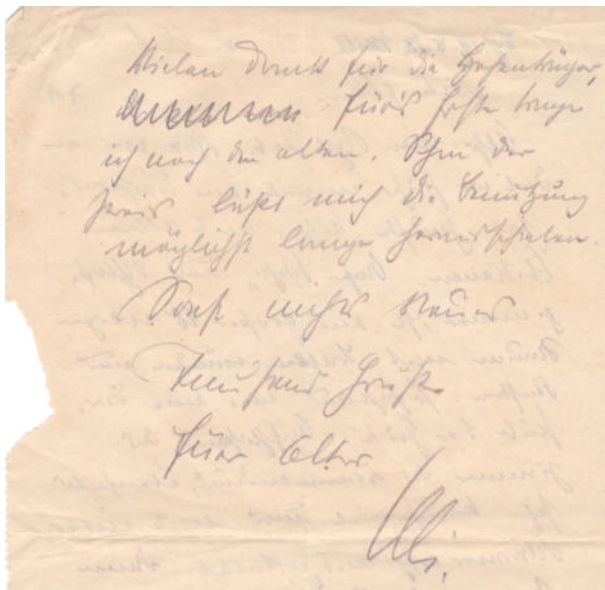 Vielen Dank für die Hosenträger,
fürs Erste trage
ich noch die alten. Schon der
Preis läßt mich die Benutzung
möglichst lange hinausschieben.
Sonst nichts Neues
Tausend Grüße
Euer alter
Uli.